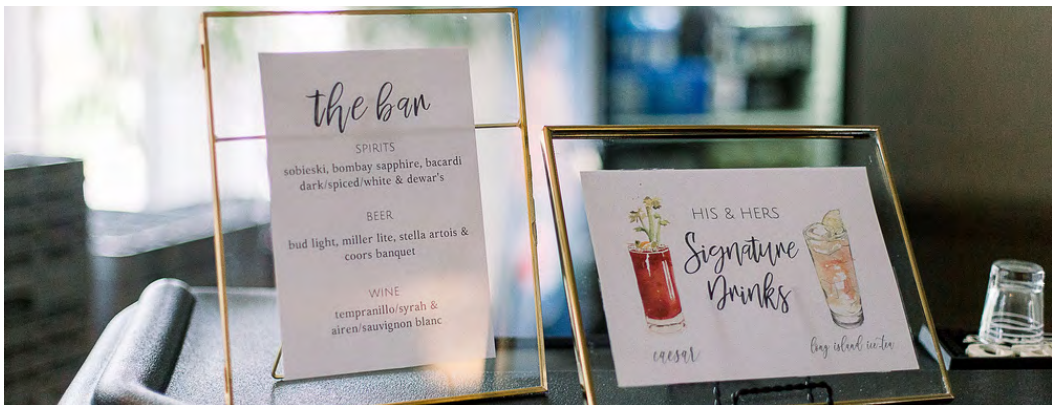 the bar
SPIRITS
sobieski, bombay sapphire, bacardi
dark/spiced/white & dewar's
BEER
bud light, miller lite, stella artois &
coors banquet
WINE
tempranillo/syrah &
airen/sauvignon blanc
HIS & HERS
Signature
Drinks
caesar
long island ice-tea